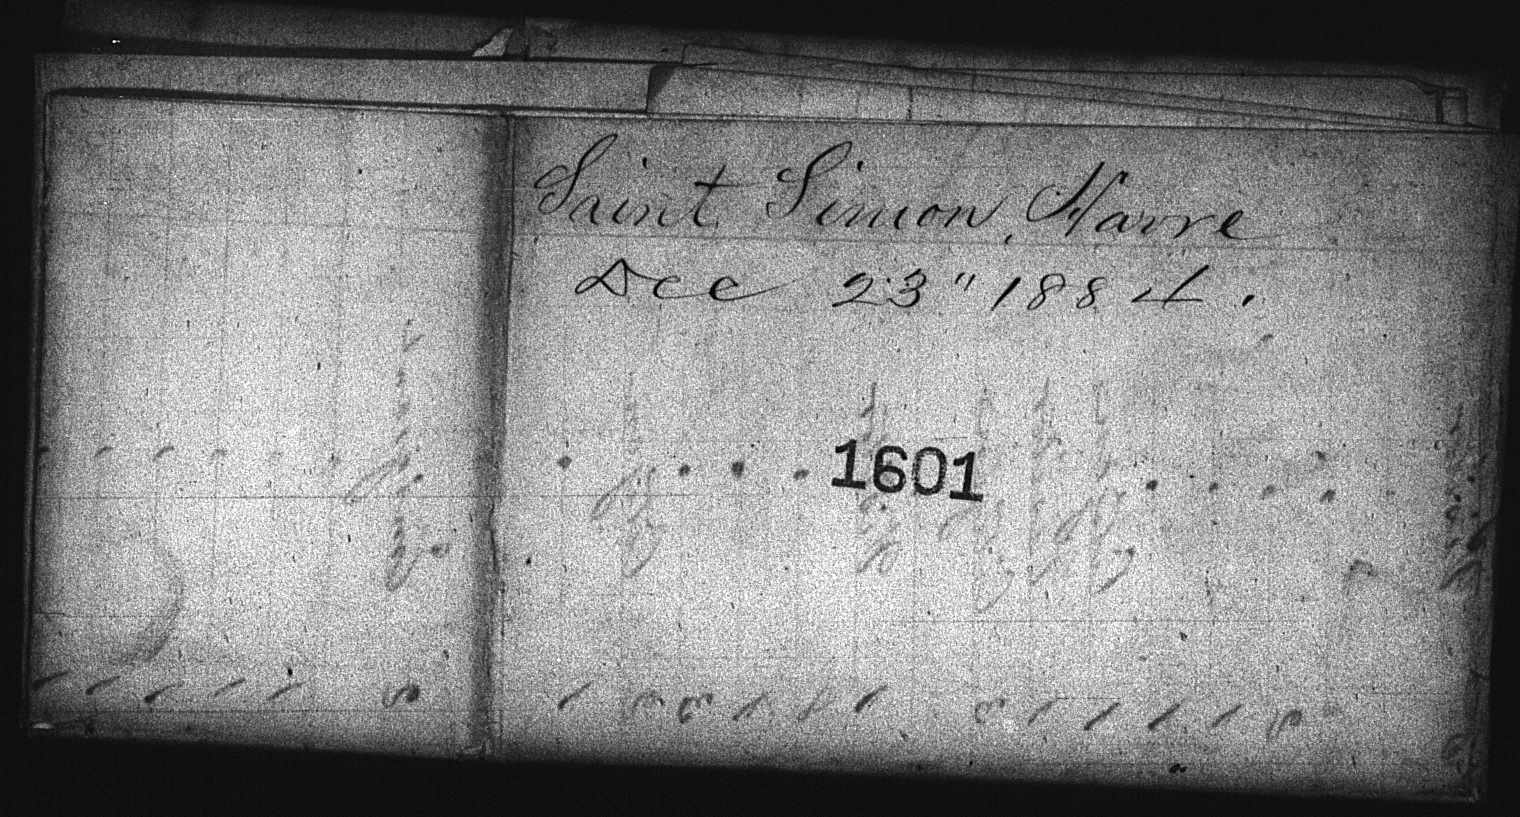 Saint Simon, Havre
Dec 23" 1884.
1601